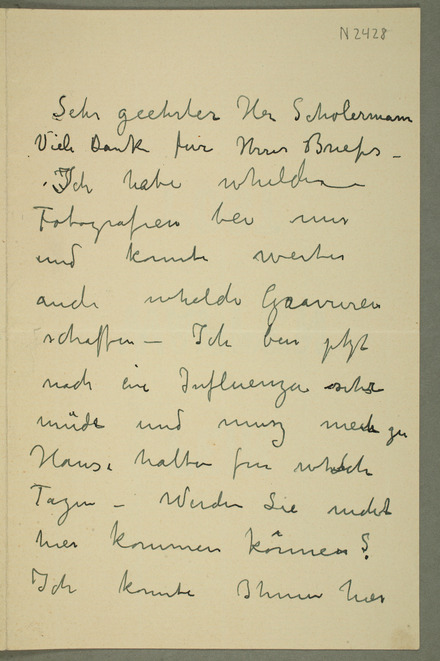 N 2428
Sehr geehrter Her Scholermann
Viele Dank für Ihres Briefs –
Ich habe whelche
Fotografien bei mir
und konnte weiter
auch whelche Gravuren
schaffen – Ich bin jetzt
nach ein Influenza sehr
müde und musz mich zu
Hause halten für
Tagen – Werden Sie nicht
hier kommen können?
Ich konnte Ihnen hier